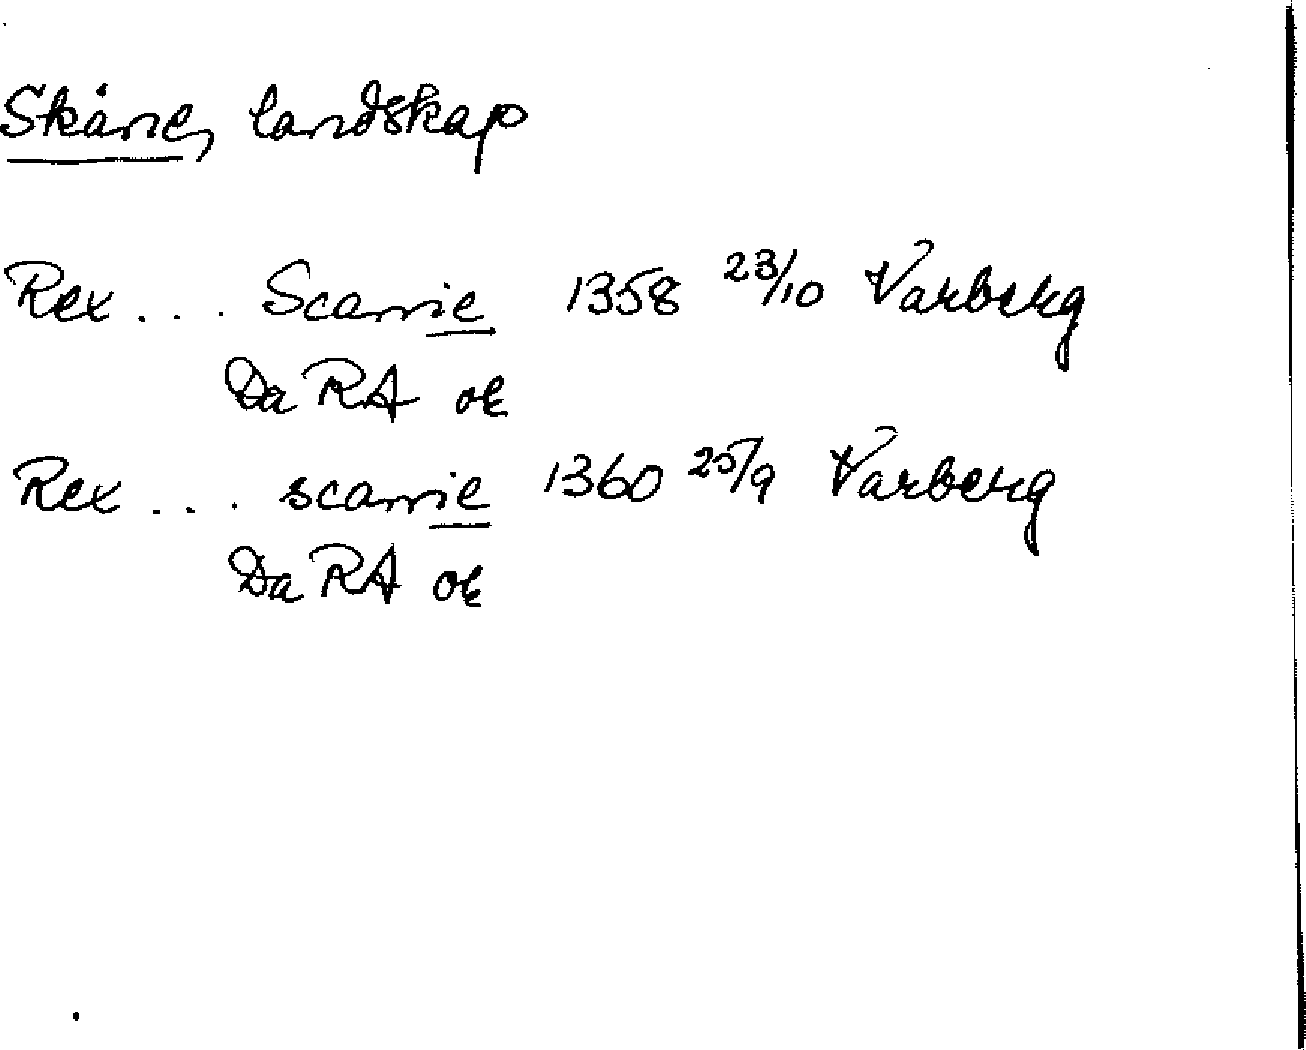 Skåne, landskap
Rex ... Scanie 1358 23/10 Varberg
DaRA or
Rex ... scanie 1360 25/9 Varberg
DaRA or